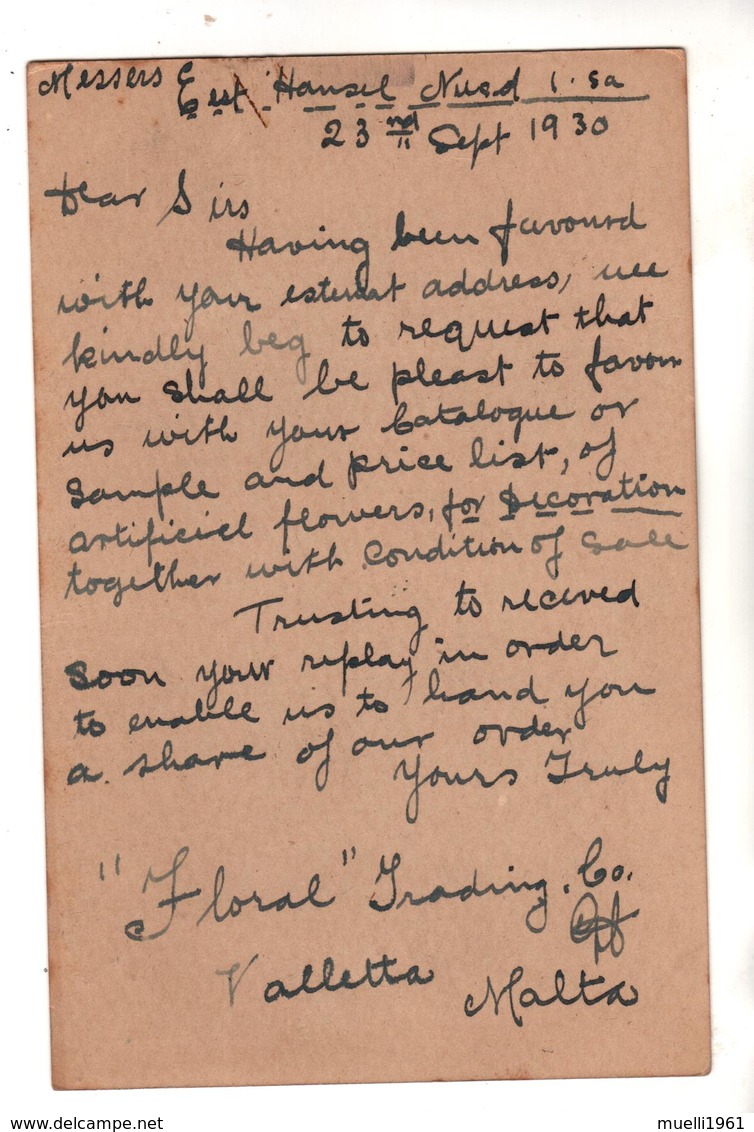 Messers E
Hansel Nusd i. sa
23nd Sept 1930
Dear Sirs
Having been favourd
with your esteemt address, wee
kindly beg to request that
you shall be pleast to favour
us with your Catalogue or
Sample and price list, of
artificiel flowers, for Decoration
together with Condition of Sale
Trusting to receved
Soon your replay in order
to enable us to hand you
a share of our order
Yours Truly
"Floral" Trading. Co.
Valletta
Malta
delcampe.net
muelli1961